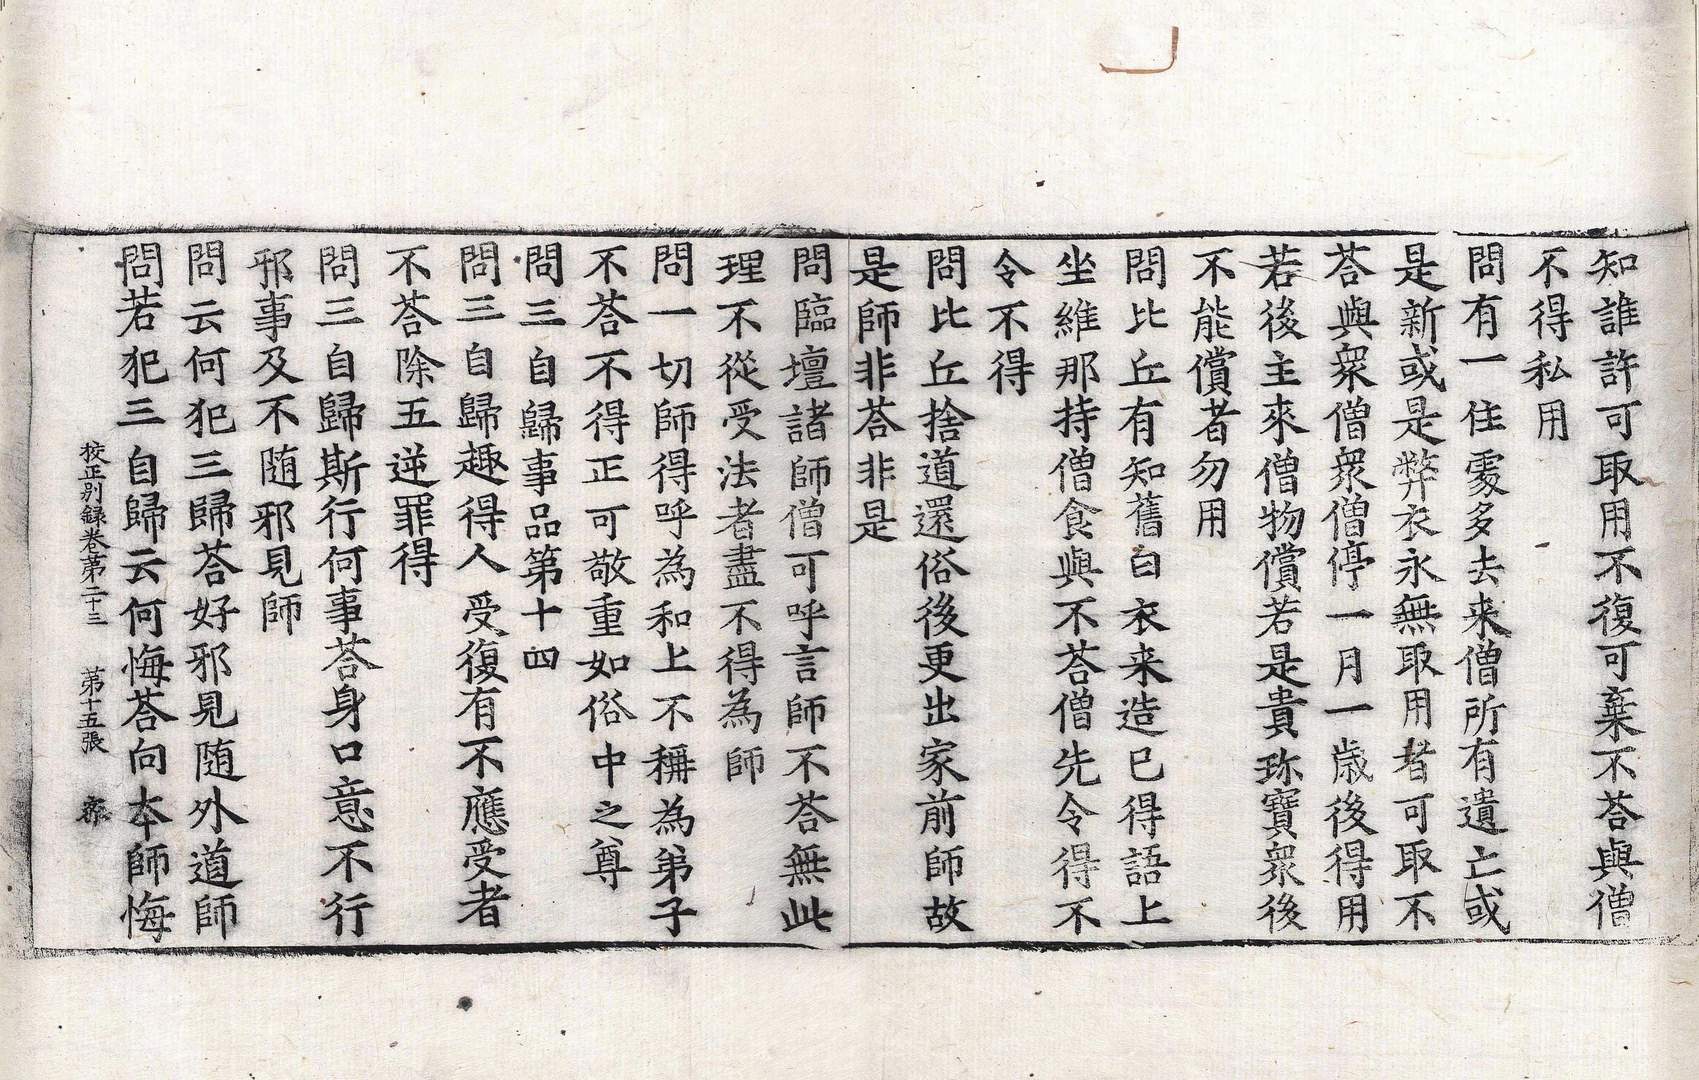 知誰許可取用不復可棄不荅與僧
不得私用
問有一住處多去来僧所有遺亡或
是新或是弊衣永無取用者可取不
荅與衆僧衆僧停一月一歳後得用
若後主來僧物償若是貴珎寶衆後
不能償者勿用
問比丘有知舊白衣来造已得語上
坐維那持僧食與不荅僧先令得不
令不得
問比丘捨道還俗後更出家前師故
是師非荅非是
問臨壇諸師僧可呼言師不荅無此
理不從受法者盡不得為師
問一切師得呼為和上不稱為弟子
不荅不得正可敬重如俗中之尊
問三自歸事品第十四
問三自歸趣得人受復有不應受者
不荅除五逆罪得
問三自歸斯行何事荅身口意不行
邪事及不随邪見師
問云何犯三歸荅好邪見随外道師
問若犯三自歸云何悔荅向本師悔
校正別録卷第二十三 第十五張